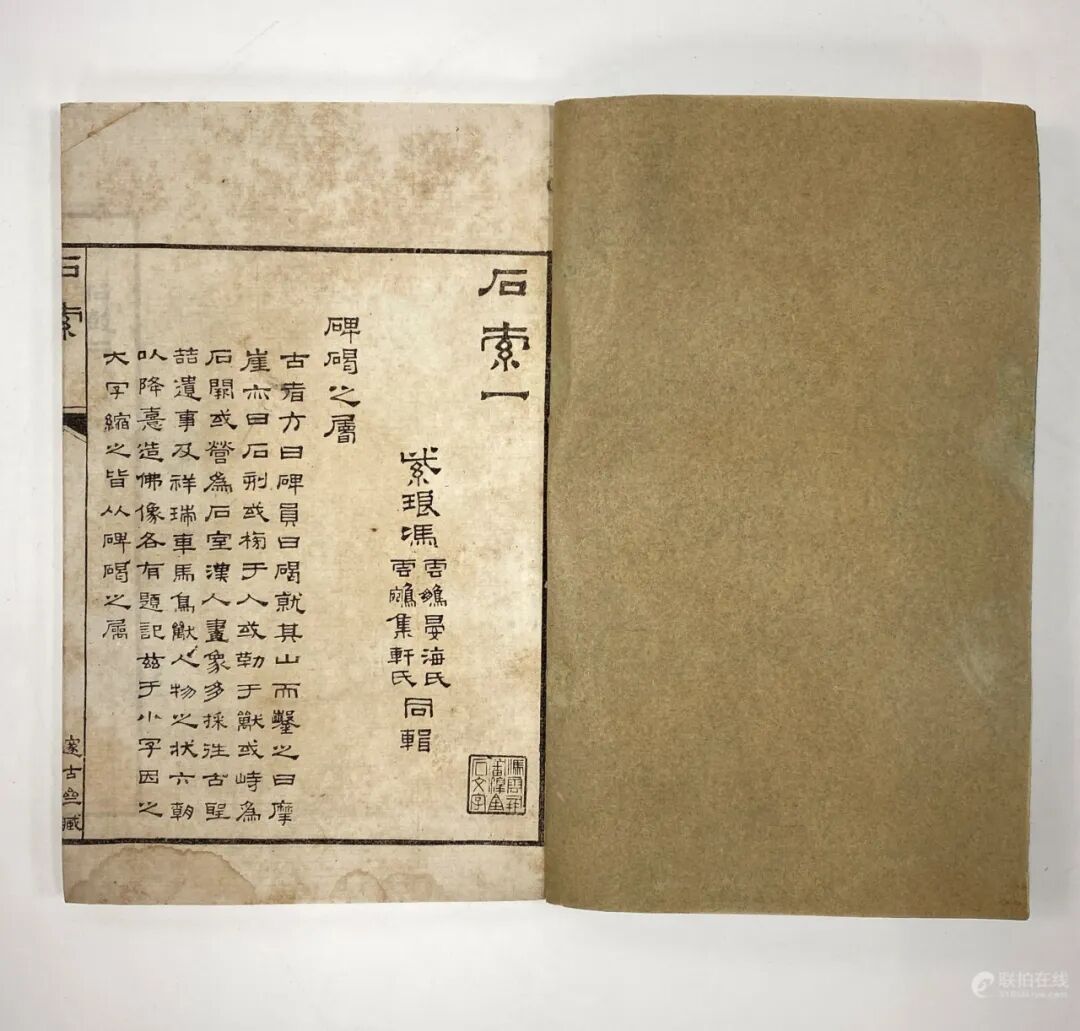 石索一
紫琅馮
雲鵬晏海氏
雲鵷集軒氏
同輯
碑碣之屬
古者方曰碑員曰碣就其山而鑿之曰摩
崖亦曰石刻或于人或勒于獸或峙為
石闕或營為石室漢人畫象多採往古聖
喆遺事及祥瑞車馬鳥獸人物之狀六朝
以降憙造佛像各有題記茲于小字因之
大字縮之皆从碑碣之屬
金
石文字
石索
邃古齋藏
联拍在线